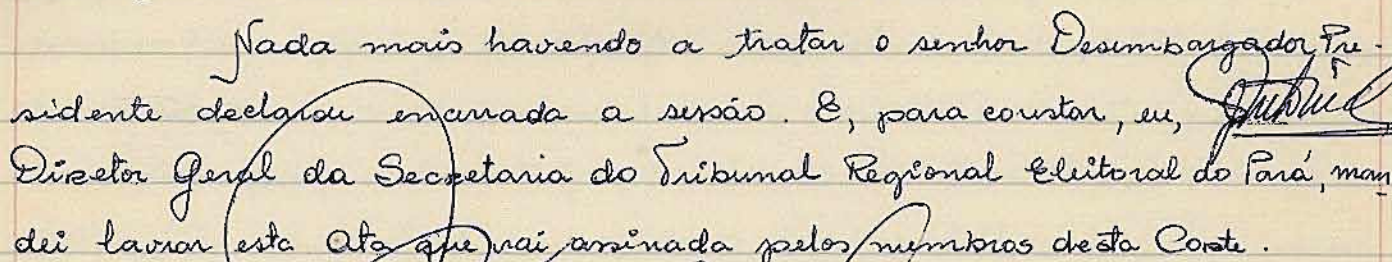 Nada mais havendo a tratar o senhor Desembargador Pre-
sidente declarou encerrada a sessão. E, para constar, eu,
Diretor Geral da Secretaria do Tribunal Regional Eleitoral do Pará, man
dei lavrar esta Ata que vai assinada pelos membros desta Corte.